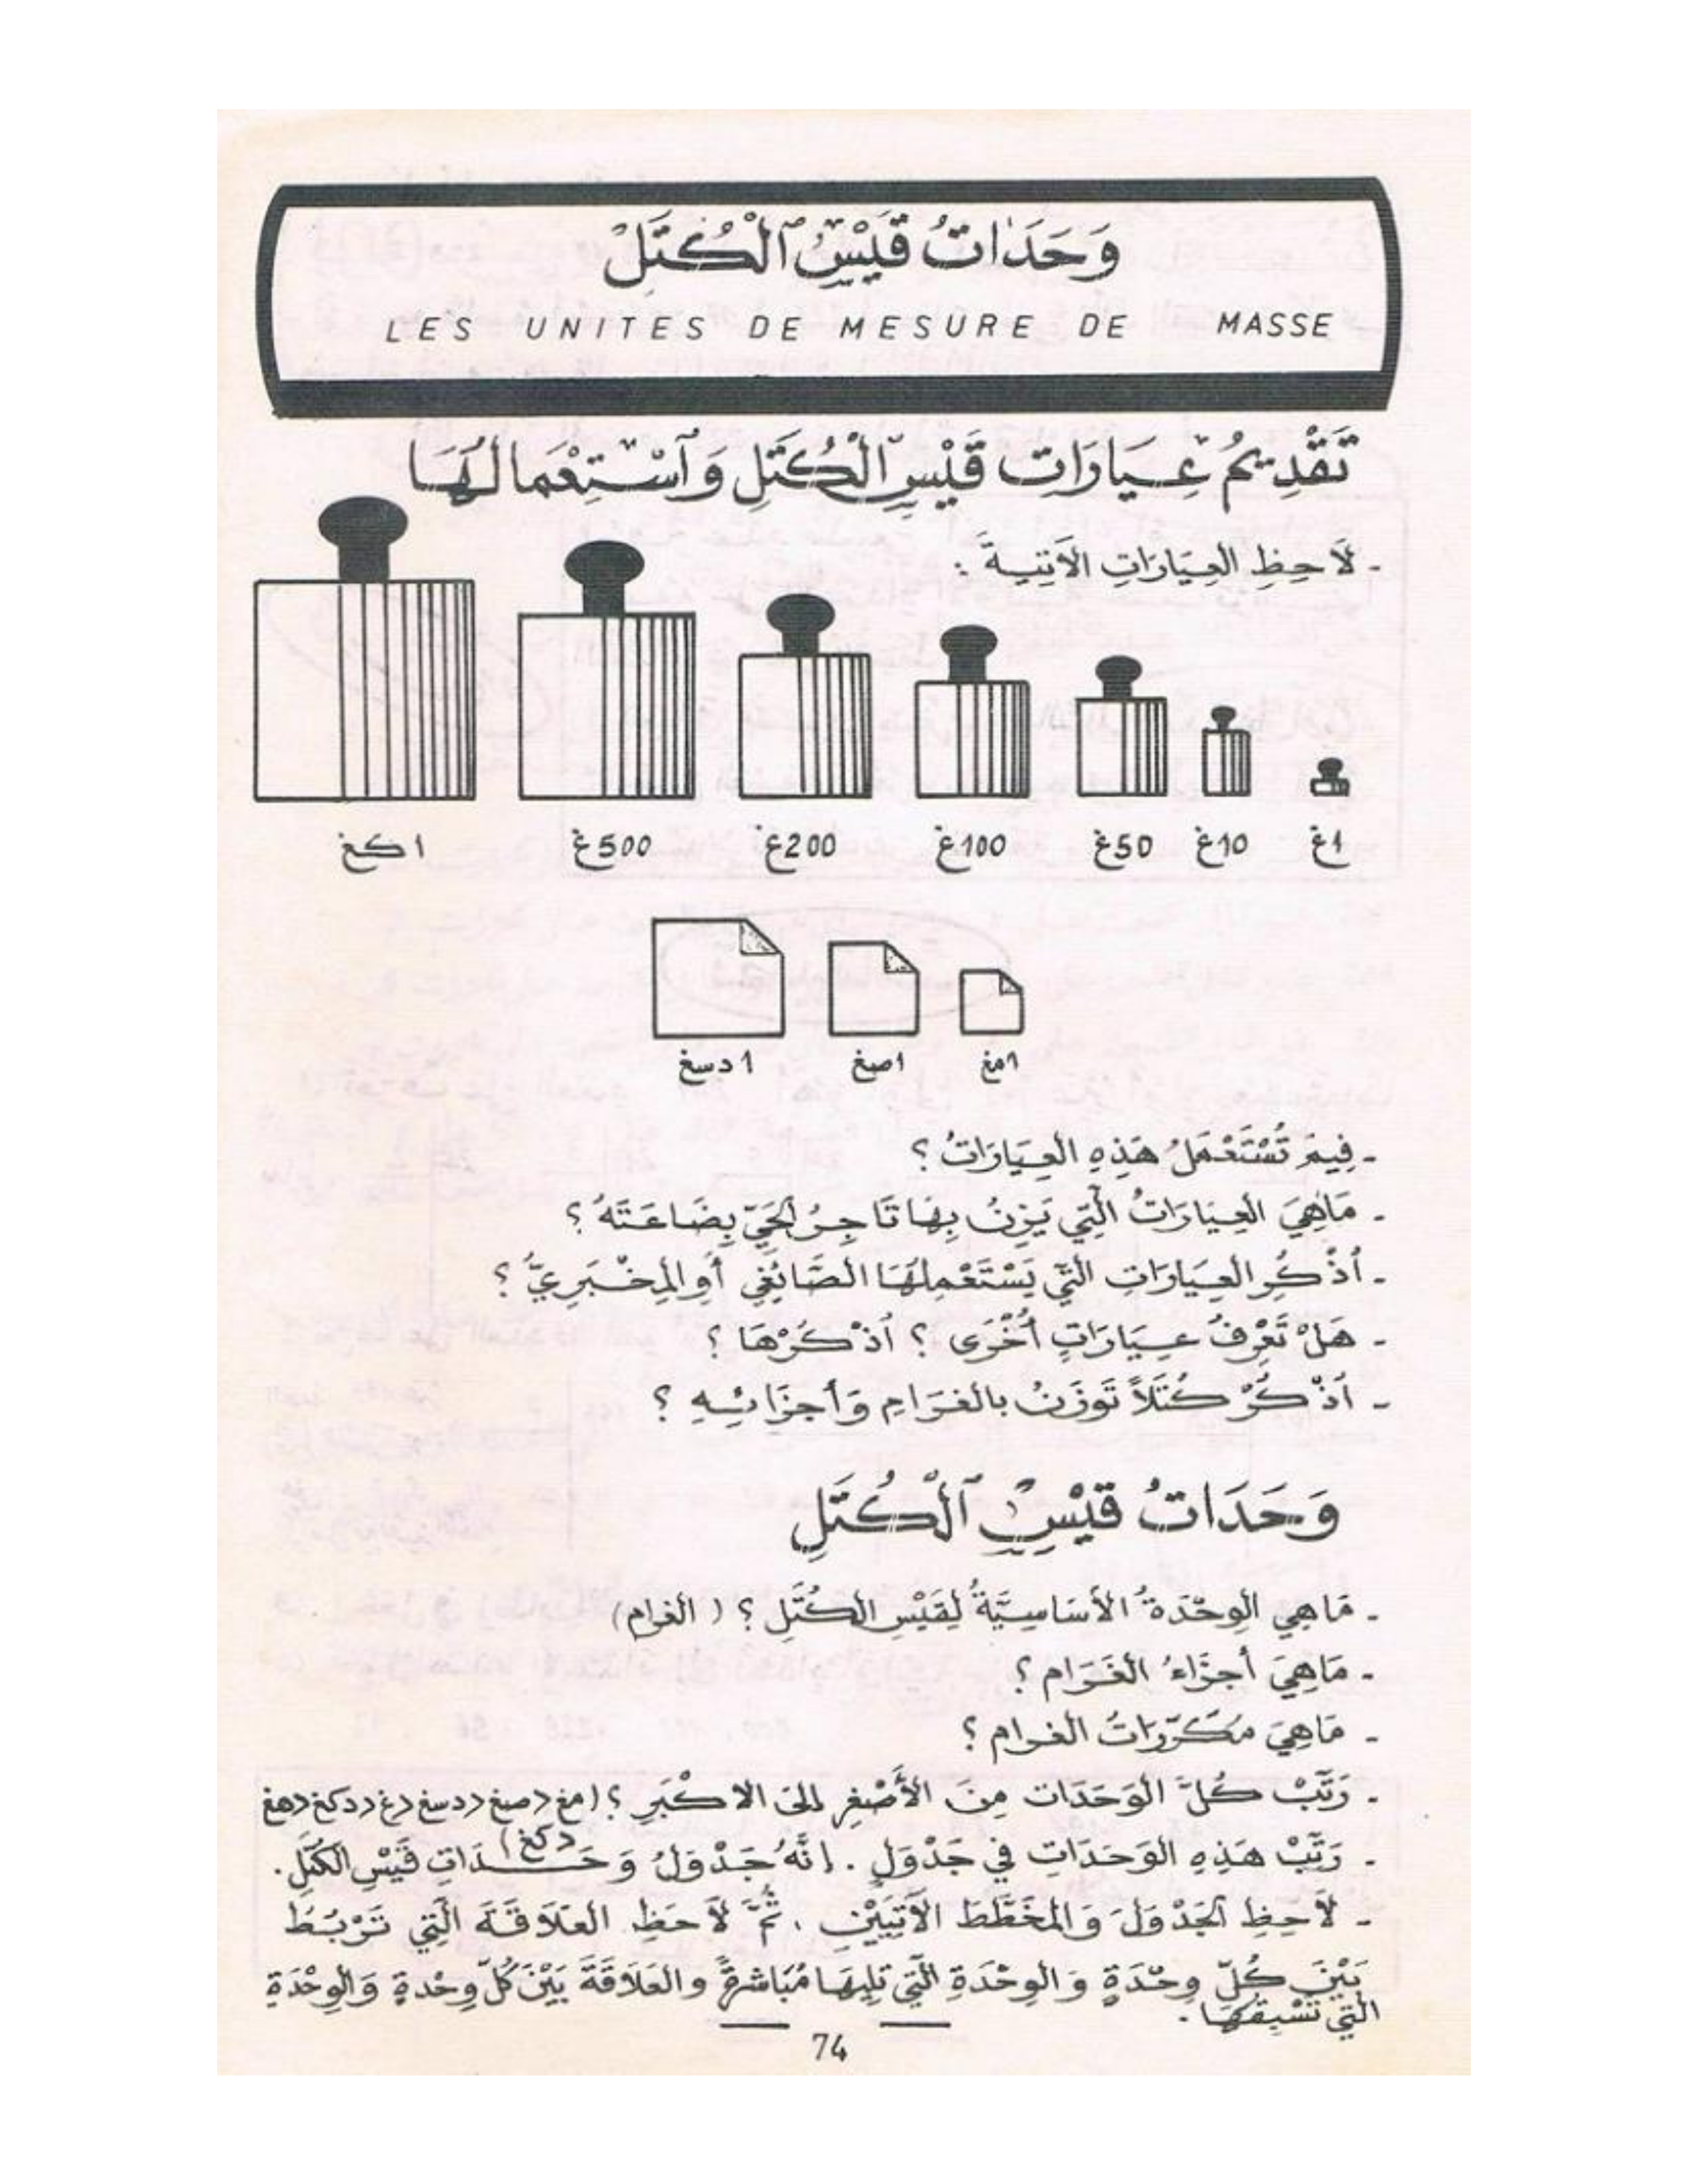 وَحَدَاتُ قَيْسِ ٱلْكُتَلِ
LES UNITES DE MESURE DE MASSE
تَقْدِيمُ عِيَارَاتِ قَيْسِ ٱلْكُتَلِ وَٱسْتِعْمَالُهَا
- لَاحِظِ العِيَارَاتِ الآتِيَةَ :
1غ 10غ 50غ 100غ 200غ 500غ 1كغ
1مغ 1صغ 1دسغ
- فِيمَ تُسْتَعْمَلُ هَذِهِ العِيَارَاتُ ؟
- مَاهِيَ العِيَارَاتُ الَّتِي يَزِنُ بِهَا تَاجِرُ الحَيِّ بِضَاعَتَهُ ؟
- أُذْكُرِ العِيَارَاتِ الَّتِي يَسْتَعْمِلُهَا الصَّائِغِي أَوِ المِخْبَرِيُّ ؟
- هَلْ تَعْرِفُ عِيَارَاتٍ أُخْرَى ؟ اُذْكُرْهَا ؟
- اُذْكُرْ كُتَلاً تُوزَنُ بالغرَامِ وَأجزَائِهِ ؟
وَحَدَاتُ قَيْسِ ٱلْكُتَلِ
- مَاهِي الوِحْدَةُ الأَسَاسِيَّةُ لِقَيْسِ الكُتَلِ ؟ ( الغرام )
- مَاهِيَ أجزَاءُ الغَرَام ؟
- مَاهِيَ مُكَرّرَاتُ الغرام ؟
- رَتِّبْ كُلَّ الوَحَدَات مِنَ الأَصْغَرِ إلىَ الاكْبَرِ ؟ (مغ > صغ > دسغ > غ > دكغ > هغ
> كغ )
- رَتِّبْ هَذِهِ الوَحَدَاتِ فِي جَدْوَلٍ . إنَّهُ جَدْوَلُ وَحَدَاتِ قَيْسِ الكُتَلِ .
- لاَحِظِ الجَدْوَلَ وَالمُخَطَّطَ الآتِيَيْنِ . ثُمَّ لاَحظِ العَلاَقَةَ الَّتِي تَرْبُطُ
بَيْنَ كُلِّ وِحْدَةٍ وَالوِحْدَةِ الَّتِي تَلِيهَا مُبَاشرةً والعَلَاقَةَ بَيْنَ كُلِّ وِحْدةٍ وَالوِحْدَةِ
الَّتِي تَسْبِقُهَا .
74